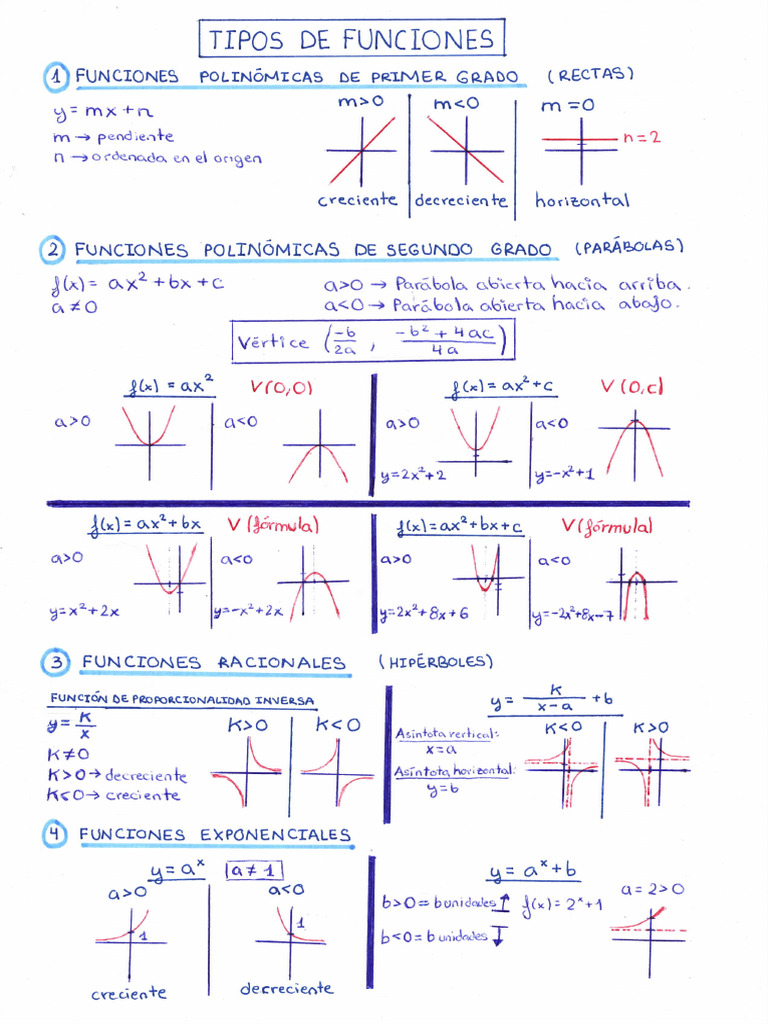 TIPOS DE FUNCIONES
1 FUNCIONES POLINÓMICAS DE PRIMER GRADO (RECTAS)
y = mx + n
m → pendiente
n → ordenada en el origen
m>0
m<0
m=0
n=2
creciente
decreciente
horizontal
2 FUNCIONES POLINÓMICAS DE SEGUNDO GRADO (PARÁBOLAS)
f(x) = ax² + bx + c
a ≠ 0
a>0 → Parábola abierta hacia arriba.
a<0 → Parábola abierta hacia abajo.
Vértice (-b/2a , -b² + 4ac/4a)
f(x) = ax² V(0,0)
a>0
a<0
f(x) = ax² + c V(0,c)
a>0
a<0
y=2x²+2
y=-x²+1
f(x) = ax² + bx V (fórmula)
a>0
a<0
y=x²+2x
y=-x²+2x
f(x) = ax² + bx + c V(fórmula)
a>0
a<0
y=2x²+8x+6
y=-2x²+8x-7
3 FUNCIONES RACIONALES (HIPÉRBOLES)
FUNCIÓN DE PROPORCIONALIDAD INVERSA
y = K/x
K≠0
K>0 → decreciente
K<0 → creciente
K>0
K<0
y = K/x-a + b
Asíntota vertical:
x=a
Asíntota horizontal:
y=b
K<0
K>0
4 FUNCIONES EXPONENCIALES
y = aˣ a≠1
a>0
a<0
1
1
creciente
decreciente
y = aˣ + b
b>0 = b unidades ↑
b<0 = b unidades ↓
f(x) = 2ˣ+1
a=2>0